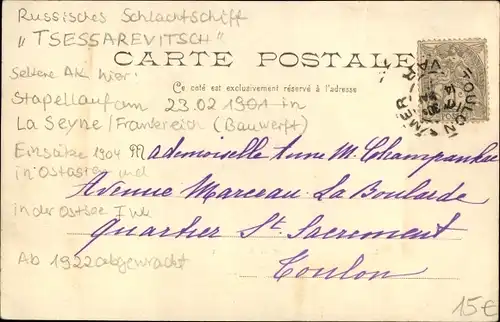 Russisches Schlachtschiff
"TSESSAREVITSCH"
CARTE POSTALE
Ce côté est exclusivement réservé à l'adresse
seltene AK hier:
Stapellauf am 23.02.1901 in
La Seyne/Frankreich (Bauwerft)
Einsätze 1904
in Ostasien und
in der Ostsee I WK
Ab 1922 abgewrackt
Mademoiselle Anne M.
Avenue Marceau La Boularde
Quartier St. Sacrement
Toulon
TOULON
VAR
15€